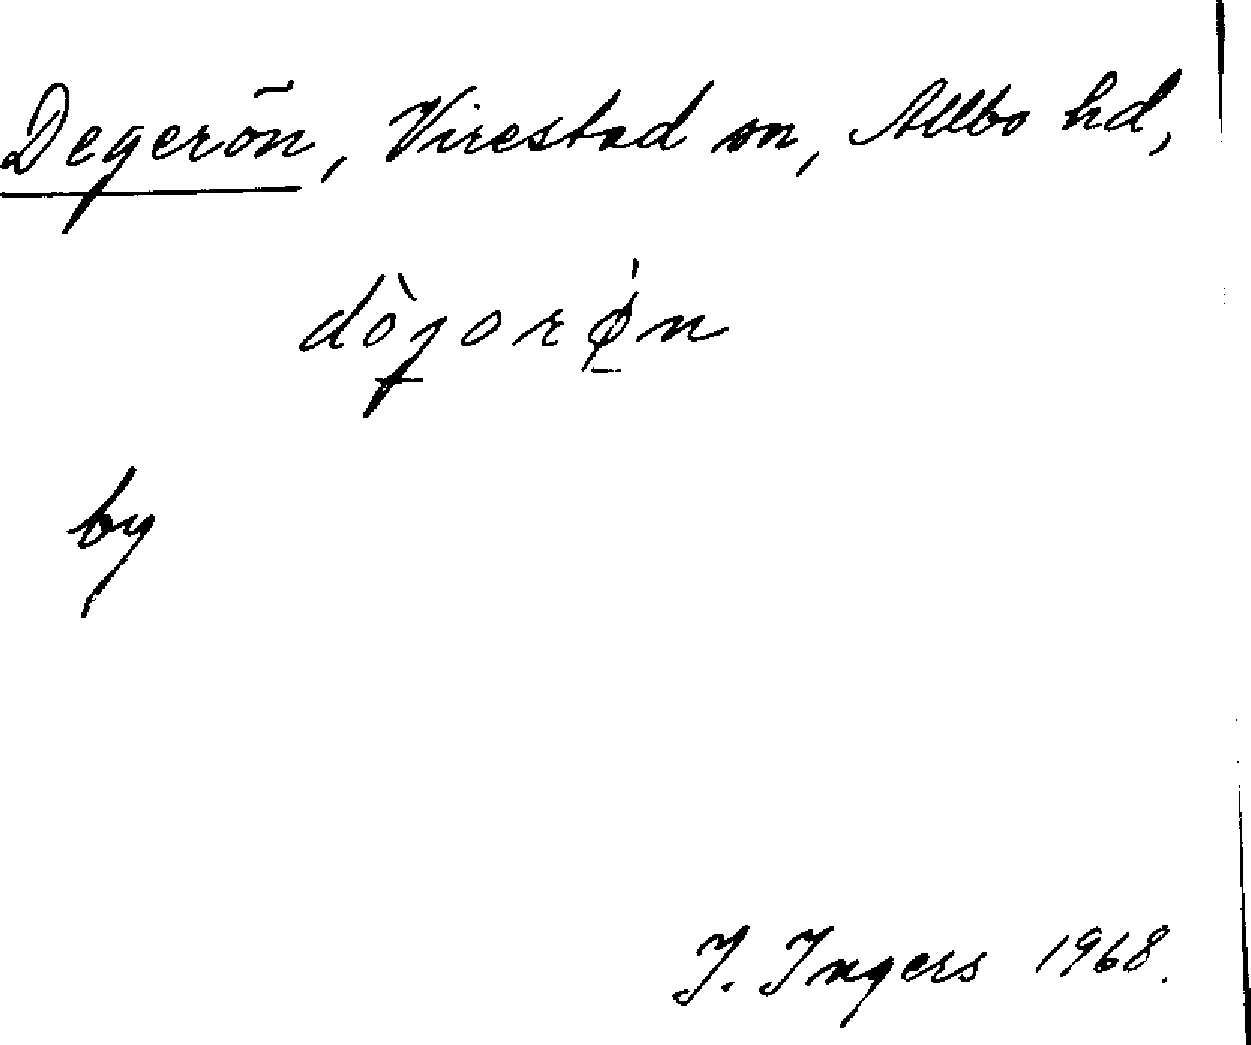 Degerön, Virestad sn, Allbo hd,
dògorǿ̱n
by
I. Ingers 1968.